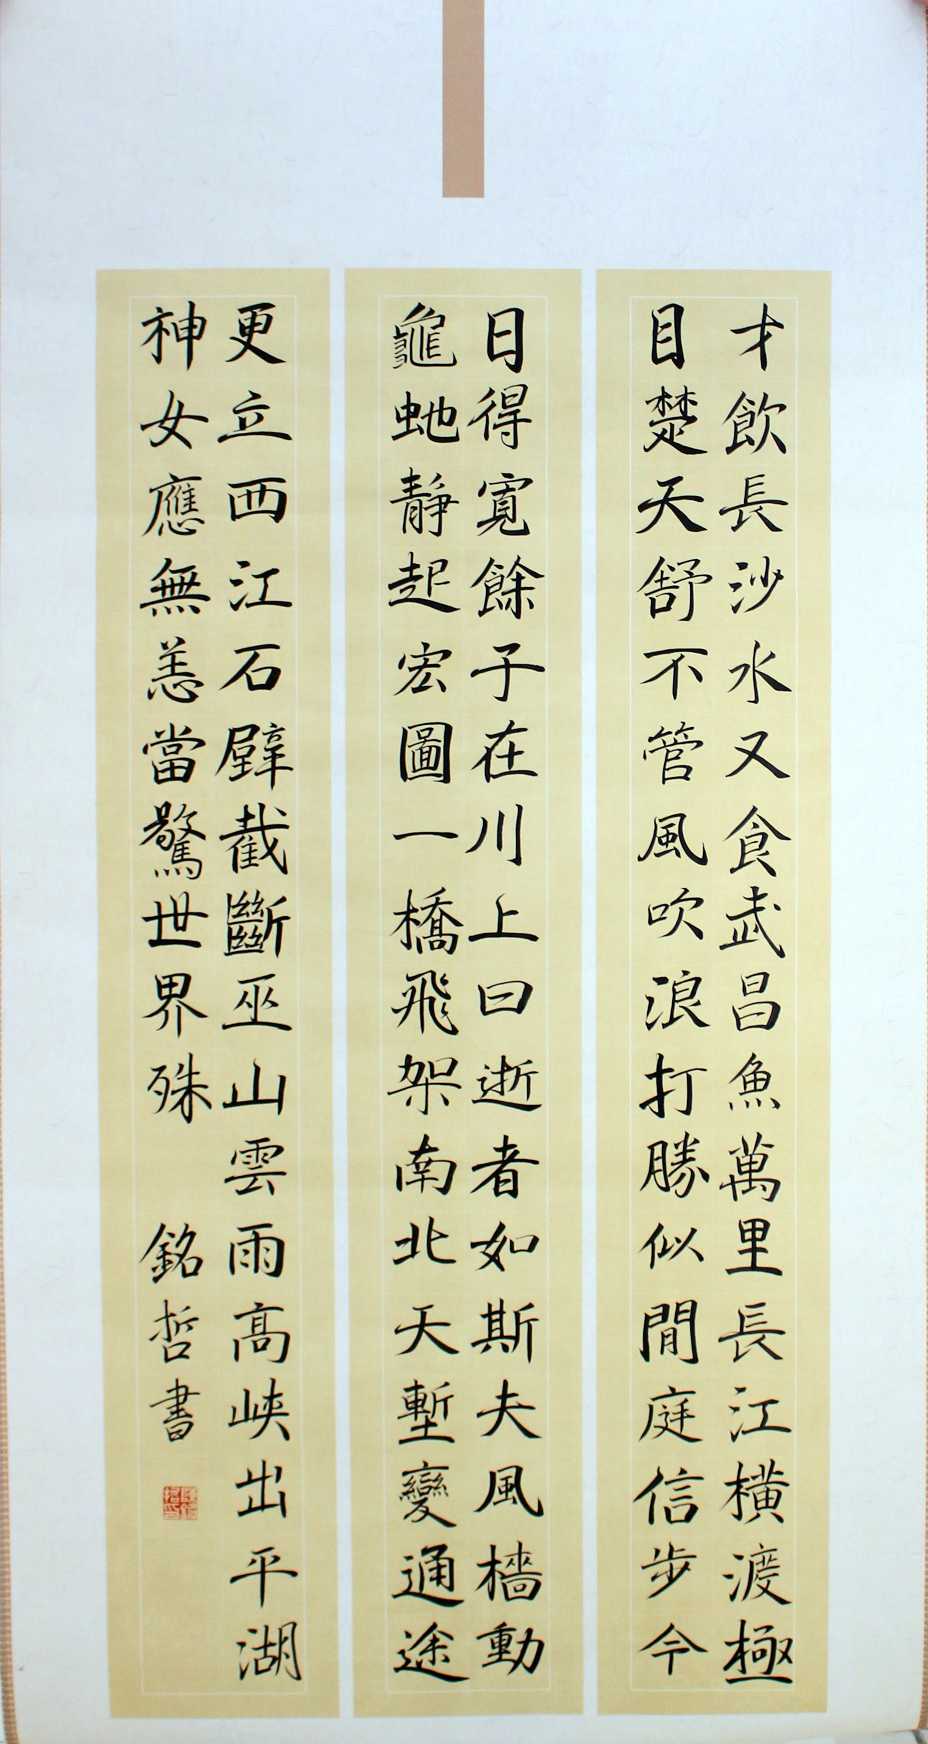 才飲長沙水又食武昌魚萬里長江橫渡極
目楚天舒不管風吹浪打勝似閒庭信步今
日得寬餘子在川上曰逝者如斯夫風檣動
龜虵靜起宏圖一橋飛架南北天塹變通途
更立西江石壁截斷巫山雲雨高峽出平湖
神女應無恙當驚世界殊
銘哲書